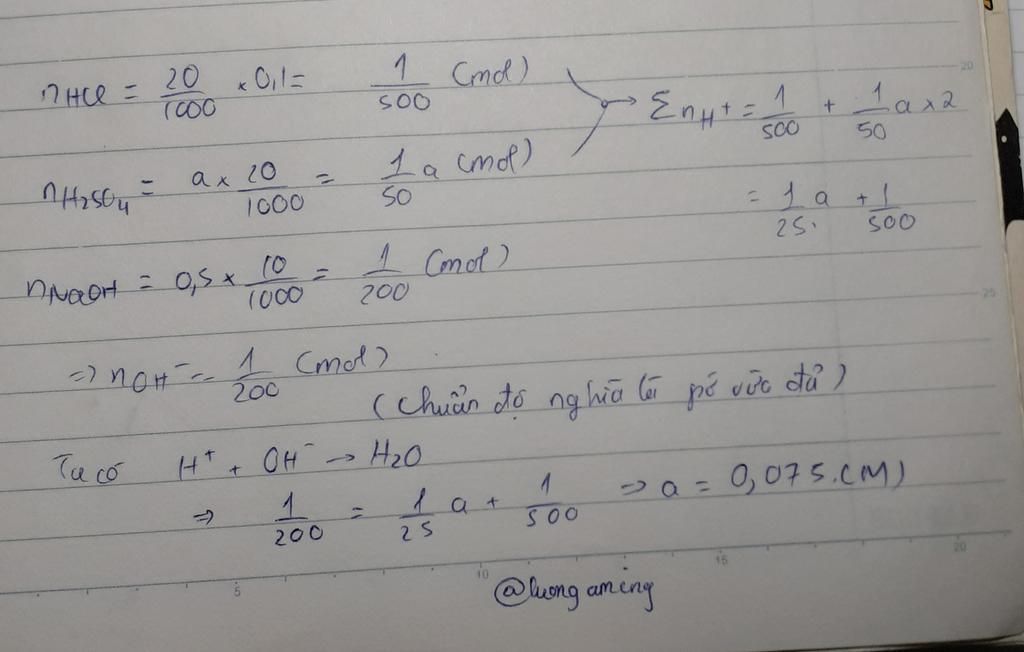 nHCl = 20/1000 × 0,1 = 1/500 (mol)
nH2SO4 = a × 20/1000 = 1/50 a (mol)
→ Σ nH+ = 1/500 + 1/50 a × 2
= 1/25 a + 1/500
nNaOH = 0,5 × 10/1000 = 1/200 (mol)
=> nOH- = 1/200 (mol)
(chuẩn độ nghĩa là pứ vừa đủ)
Ta có H+ + OH- → H2O
=> 1/200 = 1/25 a + 1/500 => a = 0,075 (M)
@luongaming
5
10
15
20
20
25